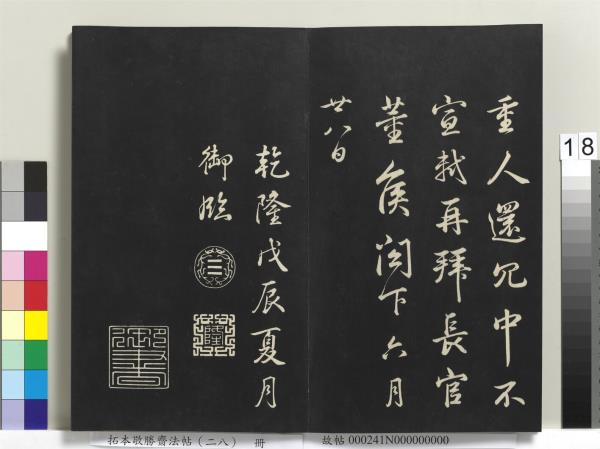 重人還冗中不
宣軾再拜長官
董侯閤下六月
廿八日
乾隆戊辰夏月
御臨
乾隆
御書
18
拓本敬勝齋法帖（二八） 冊
故帖 000241N000000000